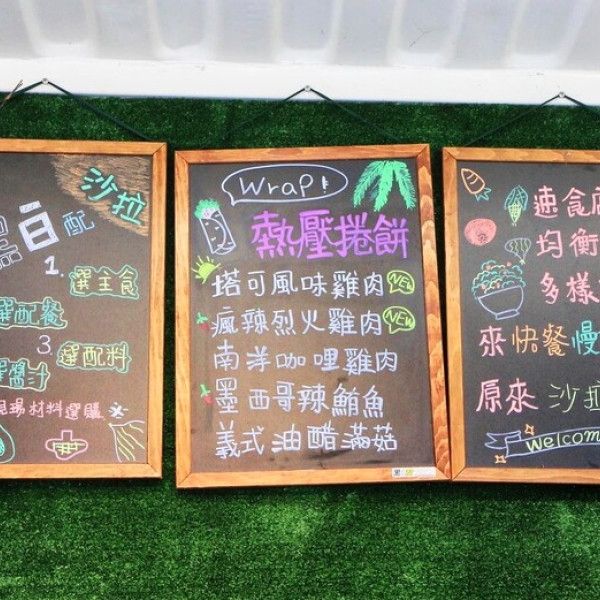 沙拉
自配
1.
選主食
選配餐
3.
選配料
醬汁
現場材料選購
Wrap!
熱壓捲餅
塔可風味雞肉 NEW
瘋辣烈火雞肉 NEW
南洋咖哩雞肉
墨西哥辣鮪魚
義式油醋滿菇
速食店
均衡
多樣
來快餐慢
原來沙拉
Welcom